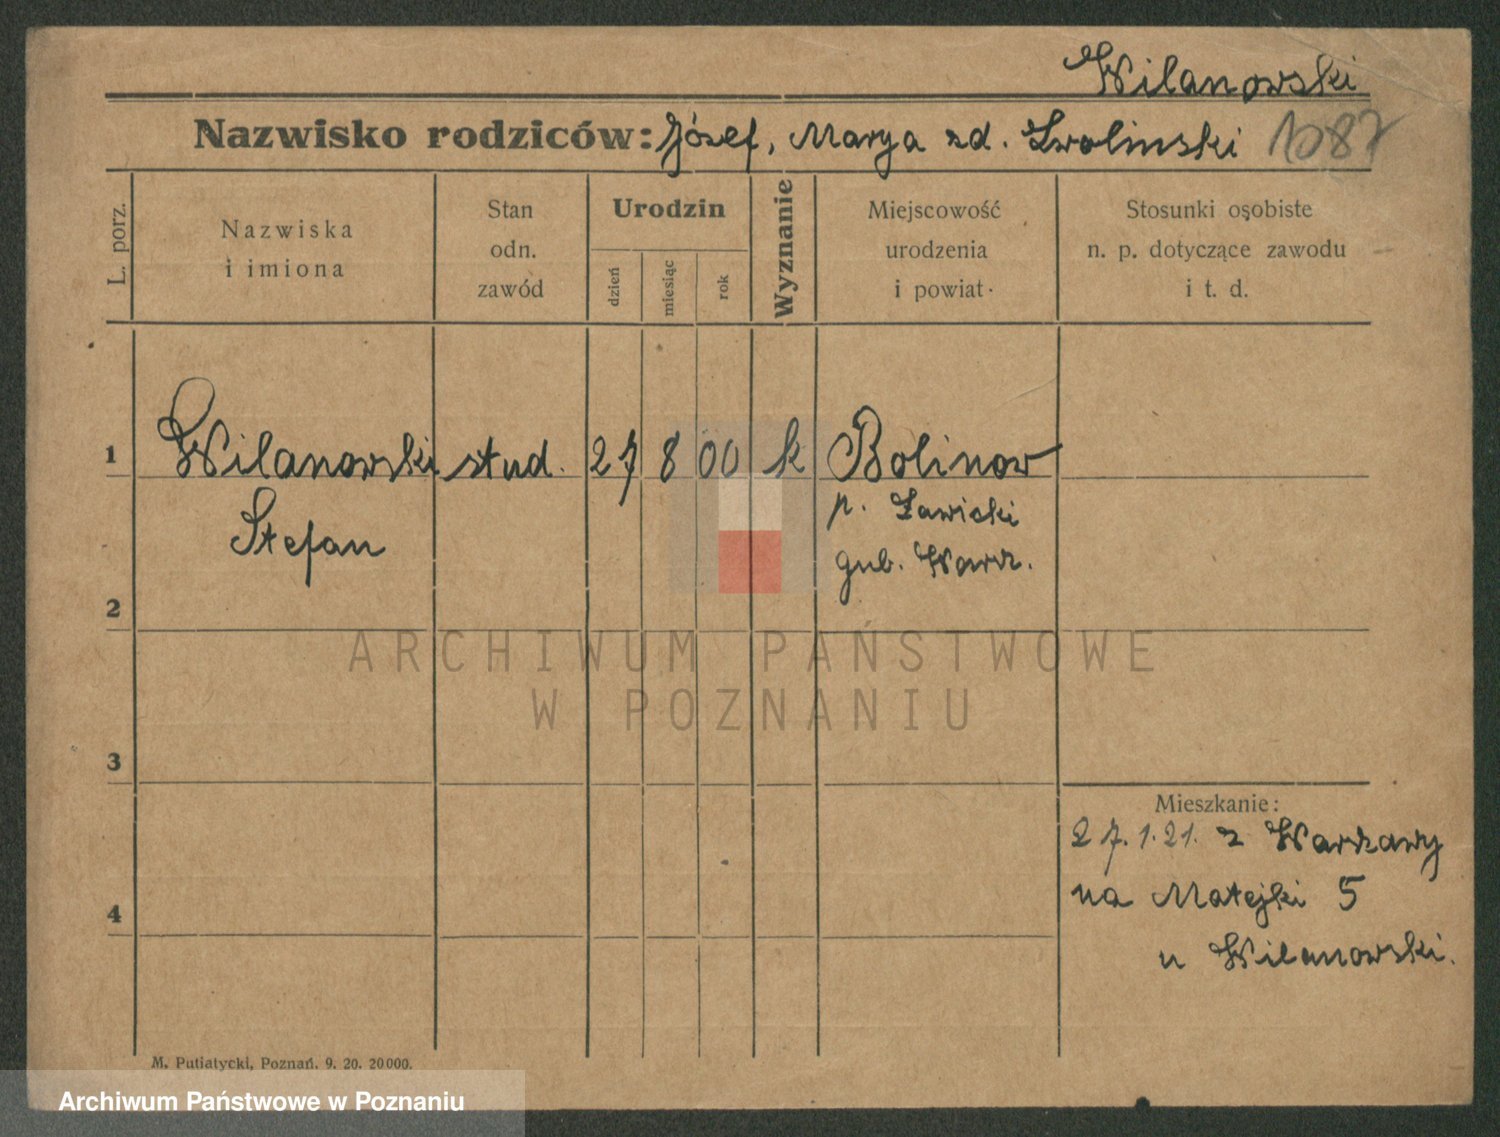 Wilanowski
Nazwisko rodziców: Józef, Marya zd. Zwolinski 1087
L. porz.
Nazwiska
i imiona
Stan
odn.
zawód
Urodzin
dzień
miesiąc
rok
Wyznanie
Miejscowość
urodzenia
i powiat
Stosunki osobiste
n. p. dotyczące zawodu
i t. d.
1 Wilanowski stud. 27 8 00 k Bolinow
Stefan
p. Lawicki
gub. Warsz.
2
3
4
Mieszkanie:
27.1.21. z Warszawy
na Matejki 5
u Wilanowski.
M. Putiatycki, Poznań. 9. 20. 20000.
ARCHIWUM PAŃSTWOWE
W POZNANIU
Archiwum Państwowe w Poznaniu